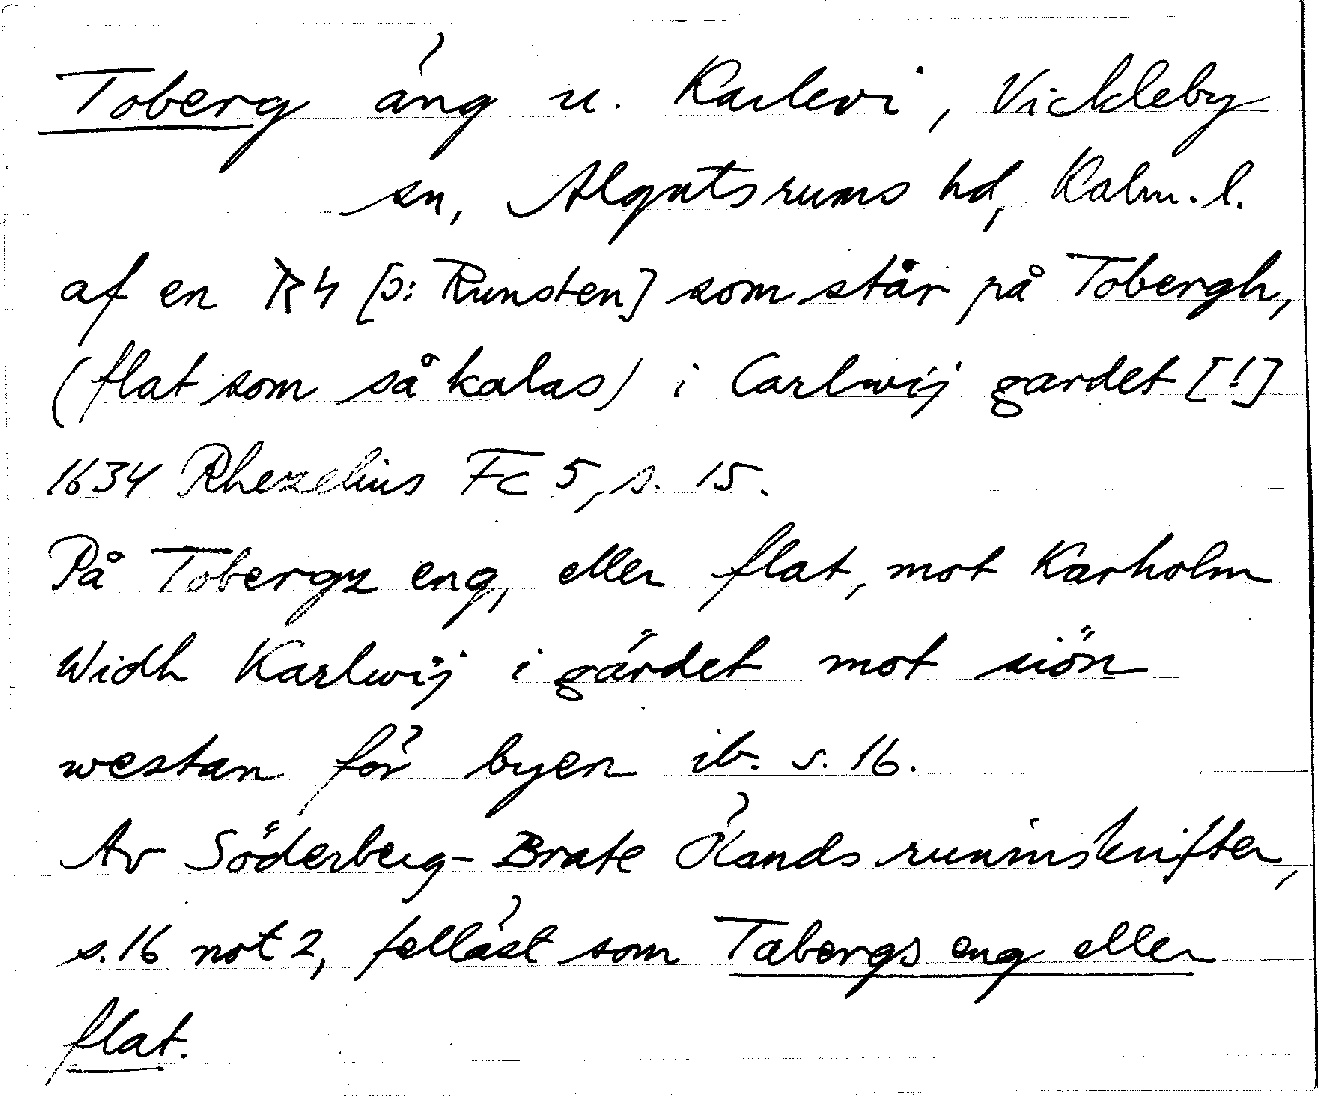 Toberg äng u. Karlevi, Vickleby
sn, Algutsrums hd, Kalm. l.
af en R4 [ɔ: Runsten] som står på Tobergh,
(flat som så kalas) i Carlwij gardet [!]
1634 Rhezelius Fc 5, s. 15.
På Tobergz eng, eller flat, mot Karholm
Widh Karlwij i gärdet mot siön
westan för byen ib. s. 16.
Av Söderberg-Brate Ölands runinskrifter,
s. 16 not 2, felläst som Tabergs eng eller
flat.